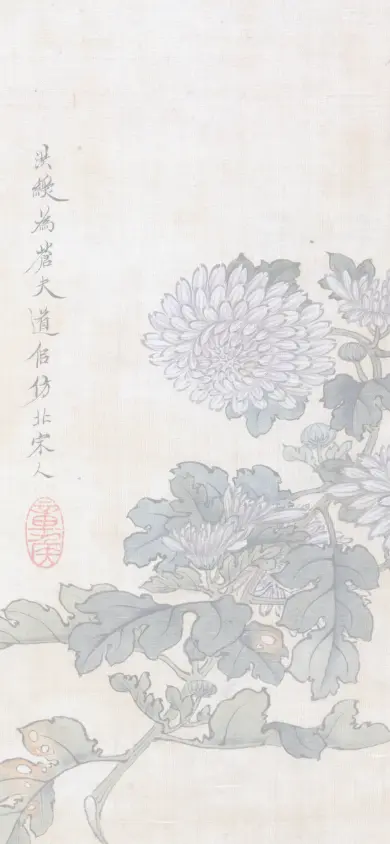 洪綬為蒼夫道侶仿北宋人
章侯